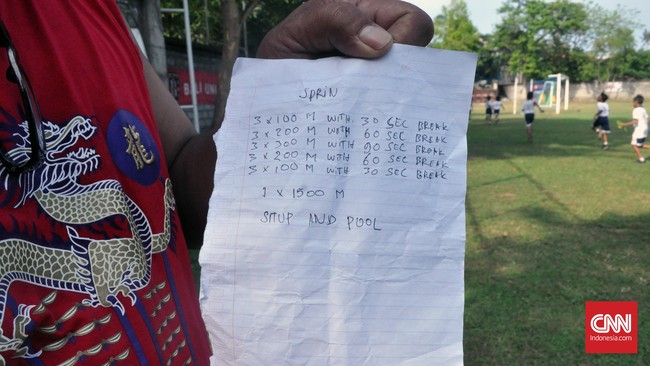 SPRIN
3 x 100 M WITH 30 SEC BREAK
3 x 200 M WITH 60 SEC BREAK
3 x 300 M WITH 90 SEC BREAK
3 x 200 M WITH 60 SEC BREAK
3 x 100 M WITH 30 SEC BREAK
1 x 1500 M
SITUP AND POOL
龍
BALI UNI
CNN
Indonesia.com